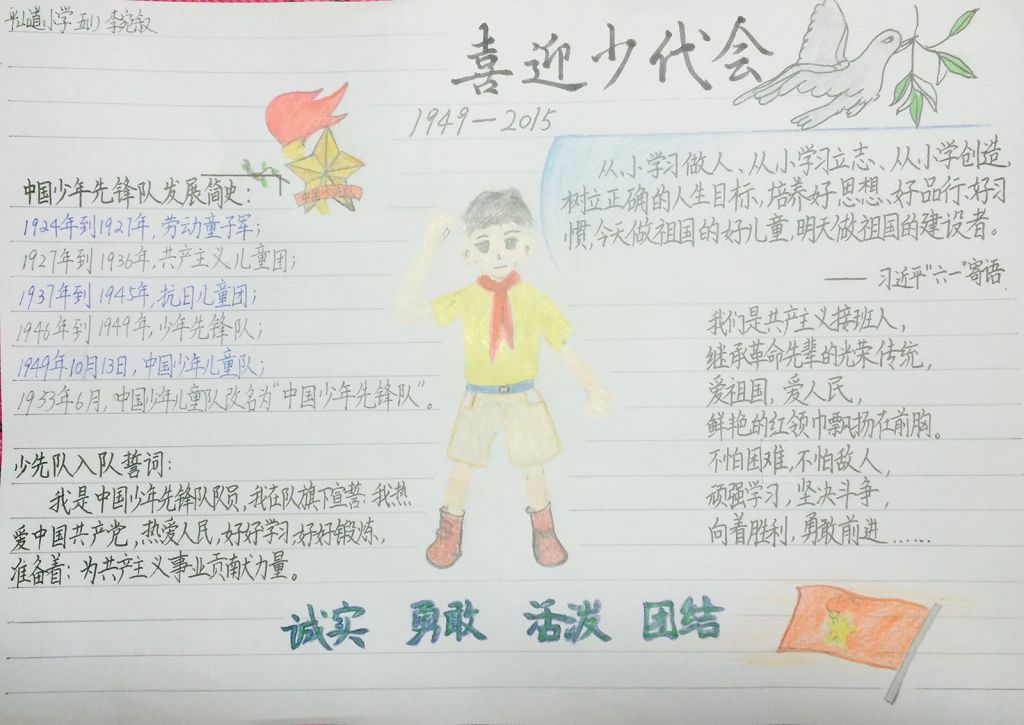 喜迎少代会
1949—2015
中国少年先锋队发展简史：
1924年到1927年，劳动童子军；
1927年到1936年，共产主义儿童团；
1937年到1945年，抗日儿童团；
1946年到1949年，少年先锋队；
1949年10月13日，中国少年儿童队；
1933年6月，中国少年儿童队改名为“中国少年先锋队”。
少先队入队誓词：
我是中国少年先锋队队员，我在队旗下宣誓：我热
爱中国共产党，热爱人民，好好学习，好好锻炼，
准备着：为共产主义事业贡献力量。
从小学习做人、从小学习立志、从小学创造
树立正确的人生目标，培养好思想、好品行、好习
惯，今天做祖国的好儿童，明天做祖国的建设者。
——习近平“六一”寄语
我们是共产主义接班人，
继承革命先辈的光荣传统，
爱祖国，爱人民，
鲜艳的红领巾飘扬在前胸。
不怕困难，不怕敌人，
顽强学习，坚决斗争，
向着胜利，勇敢前进……
诚实 勇敢 活泼 团结